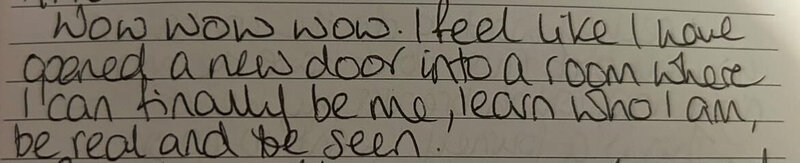 Wow wow wow. I feel like I have
opened a new door into a room where
I can finally be me, learn who I am,
be real and be seen.